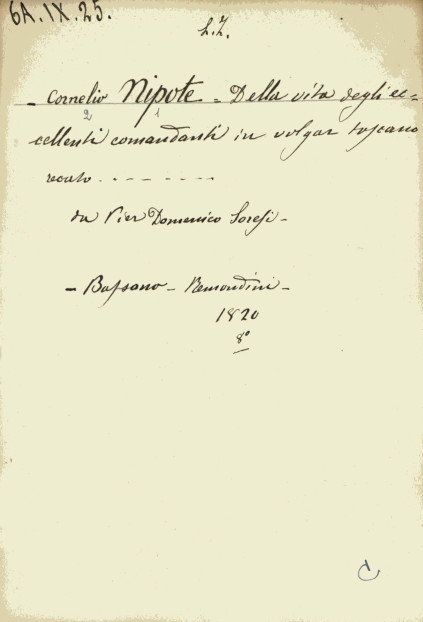 6A.IX.25.
L.Z.
- Cornelio Nipote = Della vita degli ec=
2 1
cellenti comandanti in volgar toscano
recato. - - - - - - - -
da Pier Domenico Soresi -
- Bassano - Remondini -
1820
8°
C